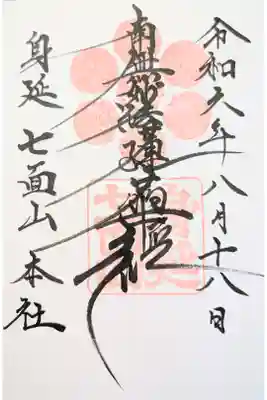 令和六年八月十八日
南無妙法蓮華経
身延七面山本社